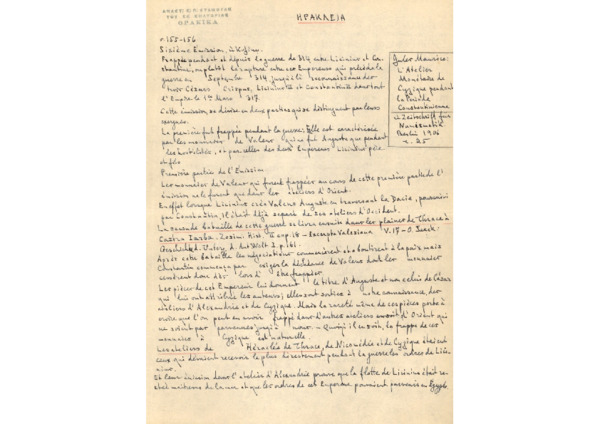 ΗΡΑΚΛΕΙΑ
ΘΡΑΚΙΚΑ
Jules Maurice:
L'Atelier
Monétaire de
Cyzique pendant
la Période
Constantinienne
Zeitschrift für
Numismatik
Berlin 1906
25
155-156
Sixième Émission
Frappée pendant et depuis la guerre de 314 entre Licinius et Constantin
guerre en Septembre 314 jusqu'à la reconnaissance des
trois Césars Crispus, Licinius II et Constantin II dans tout
l'Empire le 1er Mars 317.
Cette émission se divise en deux parties qui se distinguent par leurs
La première fut frappée pendant la guerre. Elle est caractérisée
par les monnaies de Valens qui fut Auguste que pendant
les hostilités, et par celles des deux Empereurs Licinius père
et fils
Première partie de l'Émission
Les monnaies de Valens qui furent frappées au cours de cette première partie de l'
émission ne le furent que dans les ateliers d'Orient.
En effet lorsque Licinius créa Valens Auguste en traversant la Dacie, poursuivi
par Constantin, il était déjà séparé de ses ateliers d'Occident.
La seconde bataille de cette guerre se livra ensuite dans les plaines de Thrace à
Castra Iarba. Zosim. Hist. II cap. 18 - Excerpta Valesiana V. 17 - O. Seeck
Geschichte d. Unterg. d. Ant. Welt I p. 161.
Après cette bataille les négociations commencèrent et aboutirent à la paix mais
Constantin commença par exiger la déchéance de Valens dont les monnaies
cessèrent donc dès lors d'être frappées
Les pièces de cet Empereur lui donnent le titre d'Auguste et non celui de César
qui lui ont attribué les auteurs; elles sont sorties à notre connaissance, des
ateliers d'Alexandrie et de Cyzique. Mais la rareté même de ces pièces porte à
croire que l'on peut en avoir frappé dans d'autres ateliers encore d'Orient qui
ne soient pas parvenues jusqu'à nous. - Quoiqu'il en soit, la frappe de ces
monnaies à Cyzique est naturelle.
Les ateliers de Héraclée de Thrace, de Nicomédie et de Cyzique étaient
ceux qui devaient recevoir le plus directement pendant la guerre les ordres de Licinius.
Et leur émission dans l'atelier d'Alexandrie prouve que la flotte de Licinius était restée
maîtresse de la mer et que les ordres de cet Empereur pouvaient parvenir en Égypte